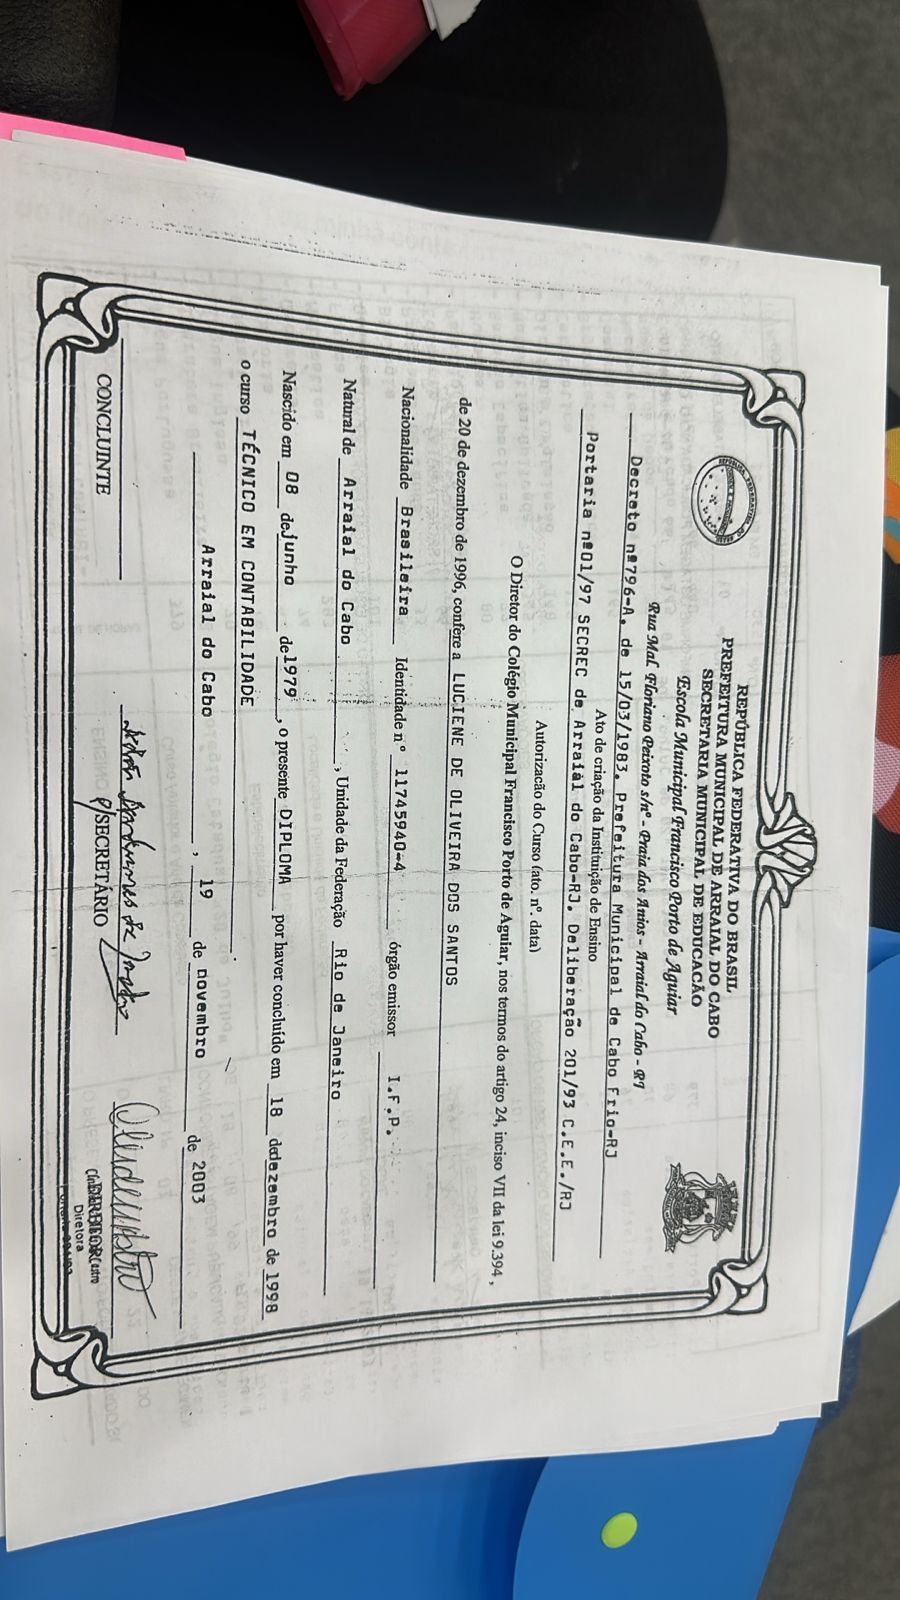 REPÚBLICA FEDERATIVA DO BRASIL
PREFEITURA MUNICIPAL DE ARRAIAL DO CABO
SECRETARIA MUNICIPAL DE EDUCAÇÃO
Escola Municipal Francisco Porto de Aguiar
Rua Mal. Floriano Peixoto s/nº - Praia dos Anjos - Arraial do Cabo - RJ
Decreto nº796-A. de 15/03/1983. Prefeitura Municipal de Cabo Frio-RJ
Ato de criação da Instituição de Ensino
Portaria nº01/97 SECREC de Arraial do Cabo-RJ. Deliberação 201/93 C.E.E./RJ
Autorizacão do Curso (ato. nº. data)
O Diretor do Colégio Municipal Francisco Porto de Aguiar, nos termos do artigo 24, inciso VII da lei 9.394,
de 20 de dezembro de 1996, confere a LUCIENE DE OLIVEIRA DOS SANTOS
Nacionalidade Brasileira Identidade nº 11745940-4 órgão emissor I.F.P.
Natural de Arraial do Cabo, Unidade da Federação Rio de Janeiro
Nascido em 08 de junho de 1979, o presente DIPLOMA por haver concluído em 18 de dezembro de 1998
o curso TÉCNICO EM CONTABILIDADE.
Arraial do Cabo, 19 de novembro de 2003
CONCLUINTE P/SECRETÁRIO DIRETOR
Castro
Diretora